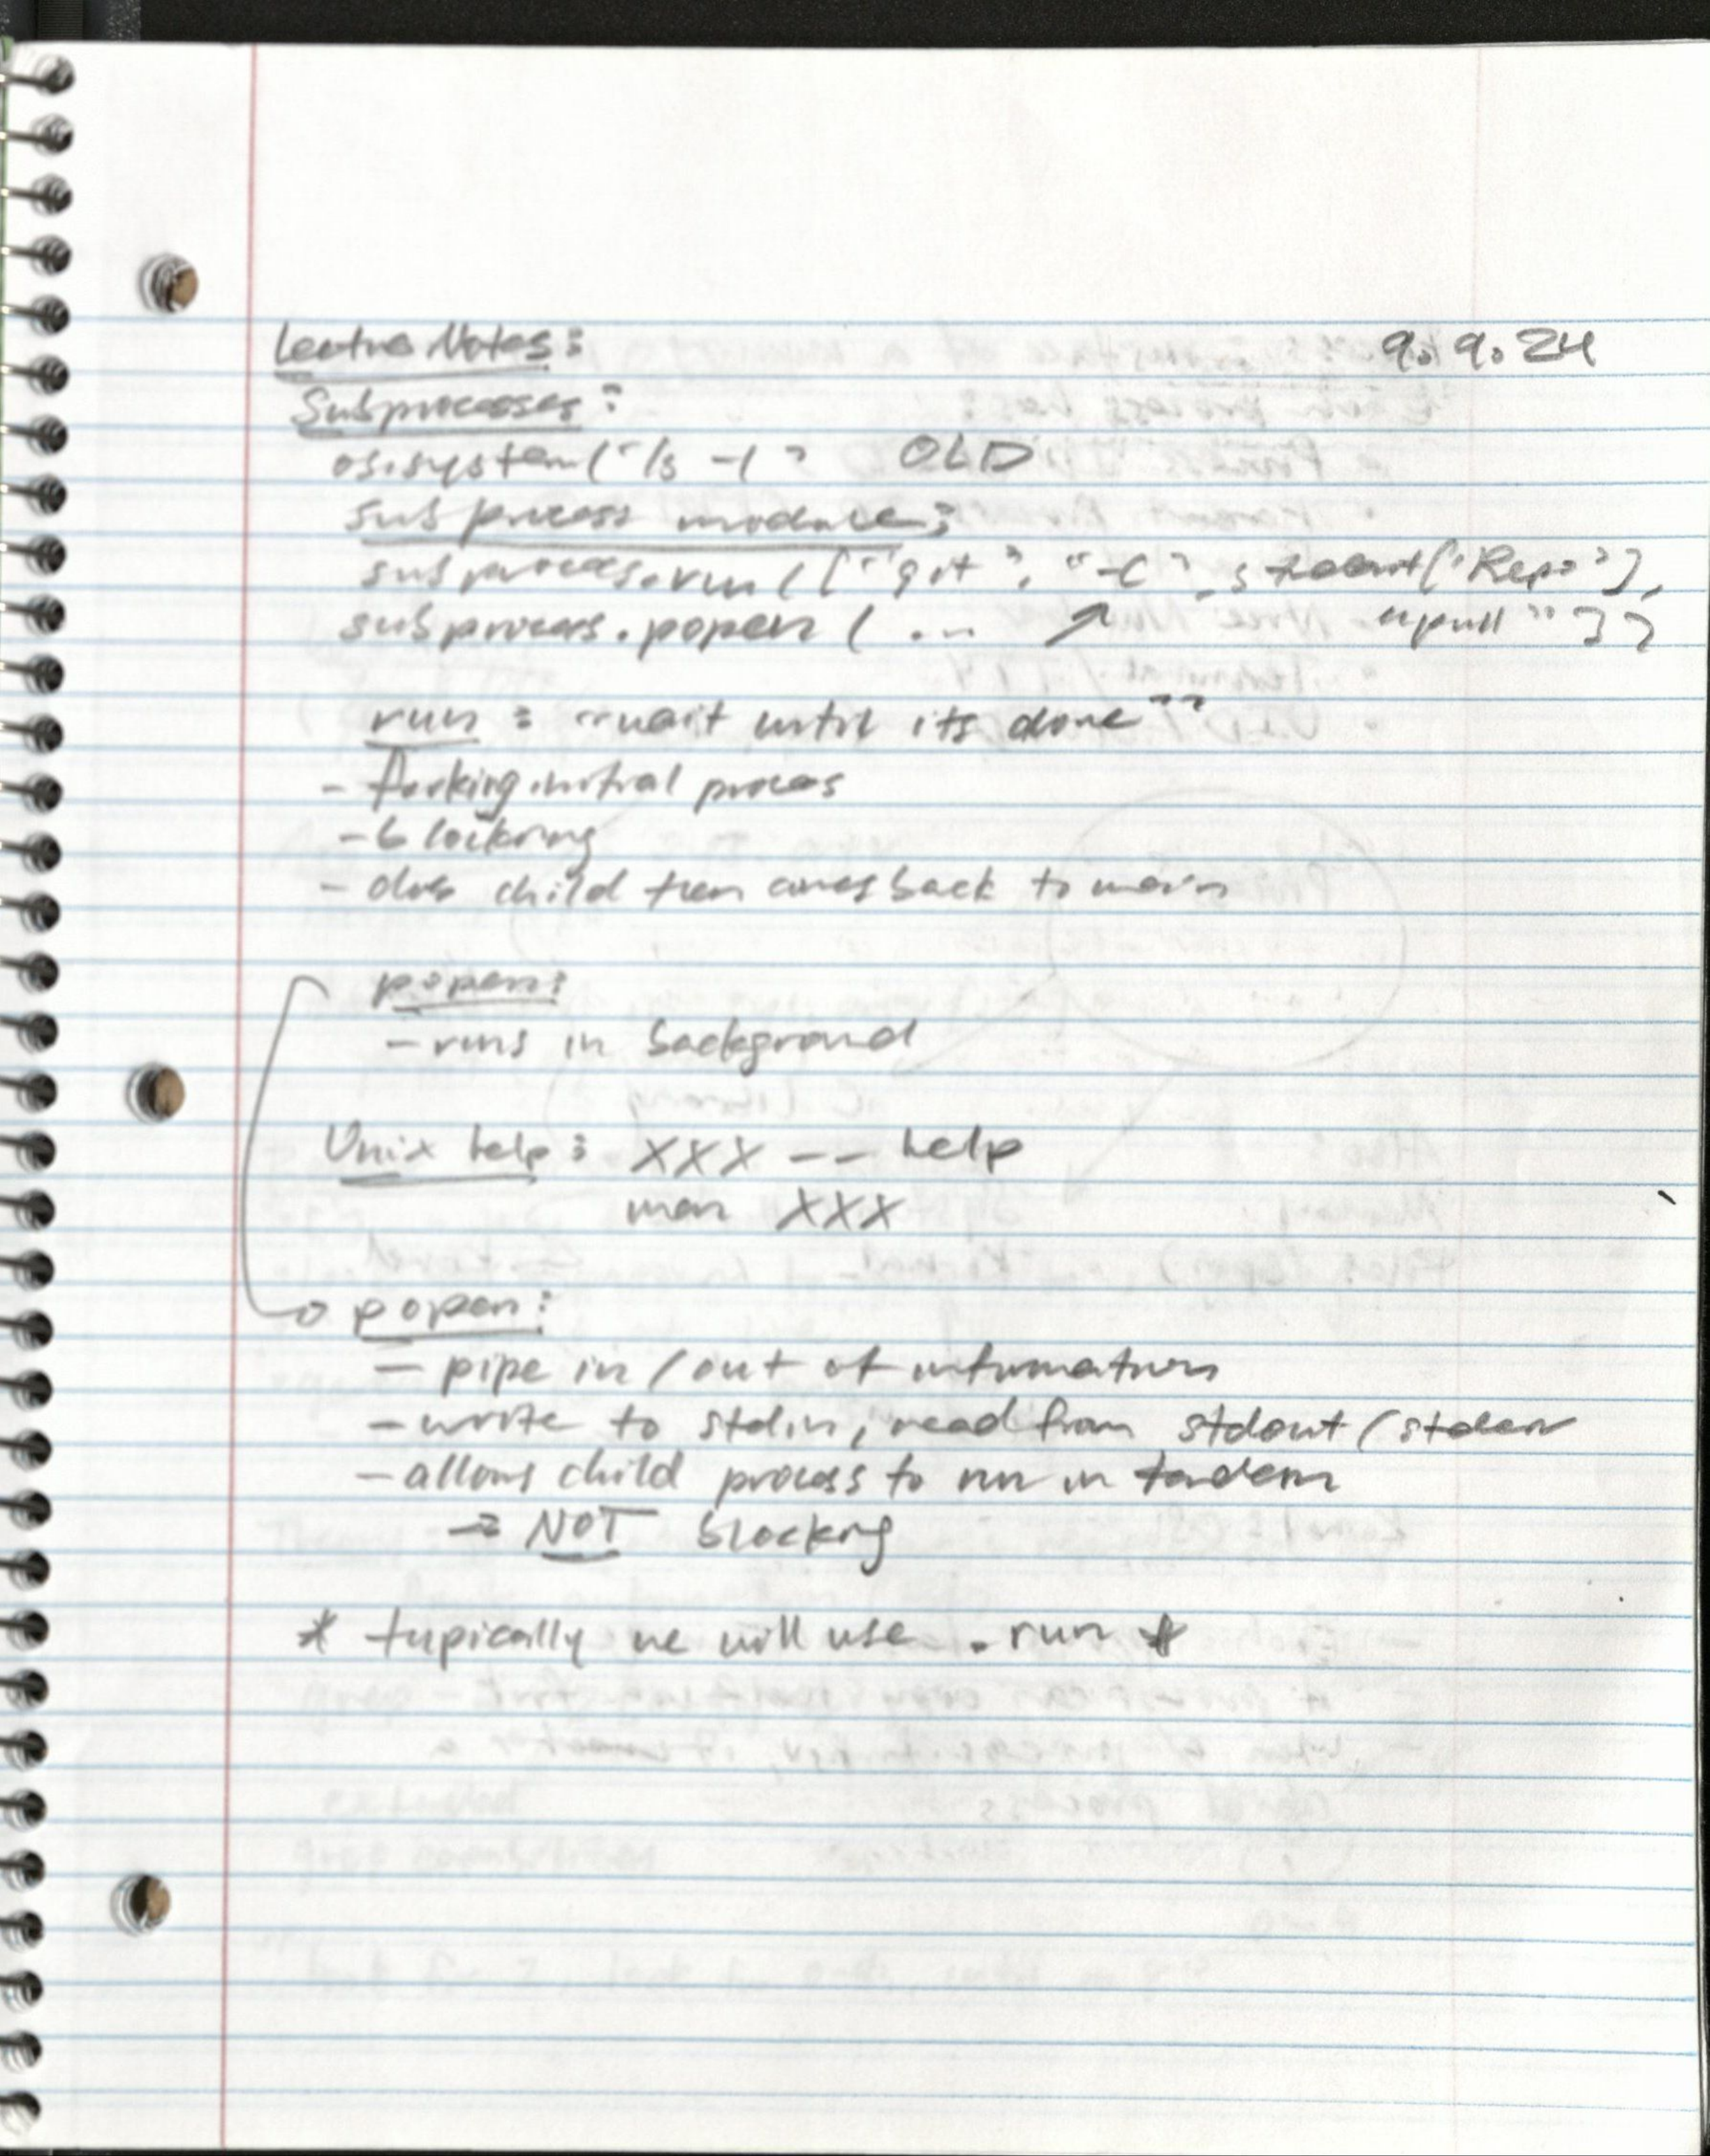 Lecture Notes: 9.9.24
Subprocesses:
os.system("ls -l" OLD
subprocess module:
subprocess.run(["git", "-C", student['Repo'],
"pull"])
subprocess.popen(... ↗
run: "wait until its done"
- forking initial process
- blocking
- does child then comes back to main
popen:
- runs in background
Unix help: XXX -- help
man XXX
→ popen:
- pipe in/out of information
- write to stdin, read from stdout/stderr
- allows child process to run in tandem
→ NOT blocking
* typically we will use .run *